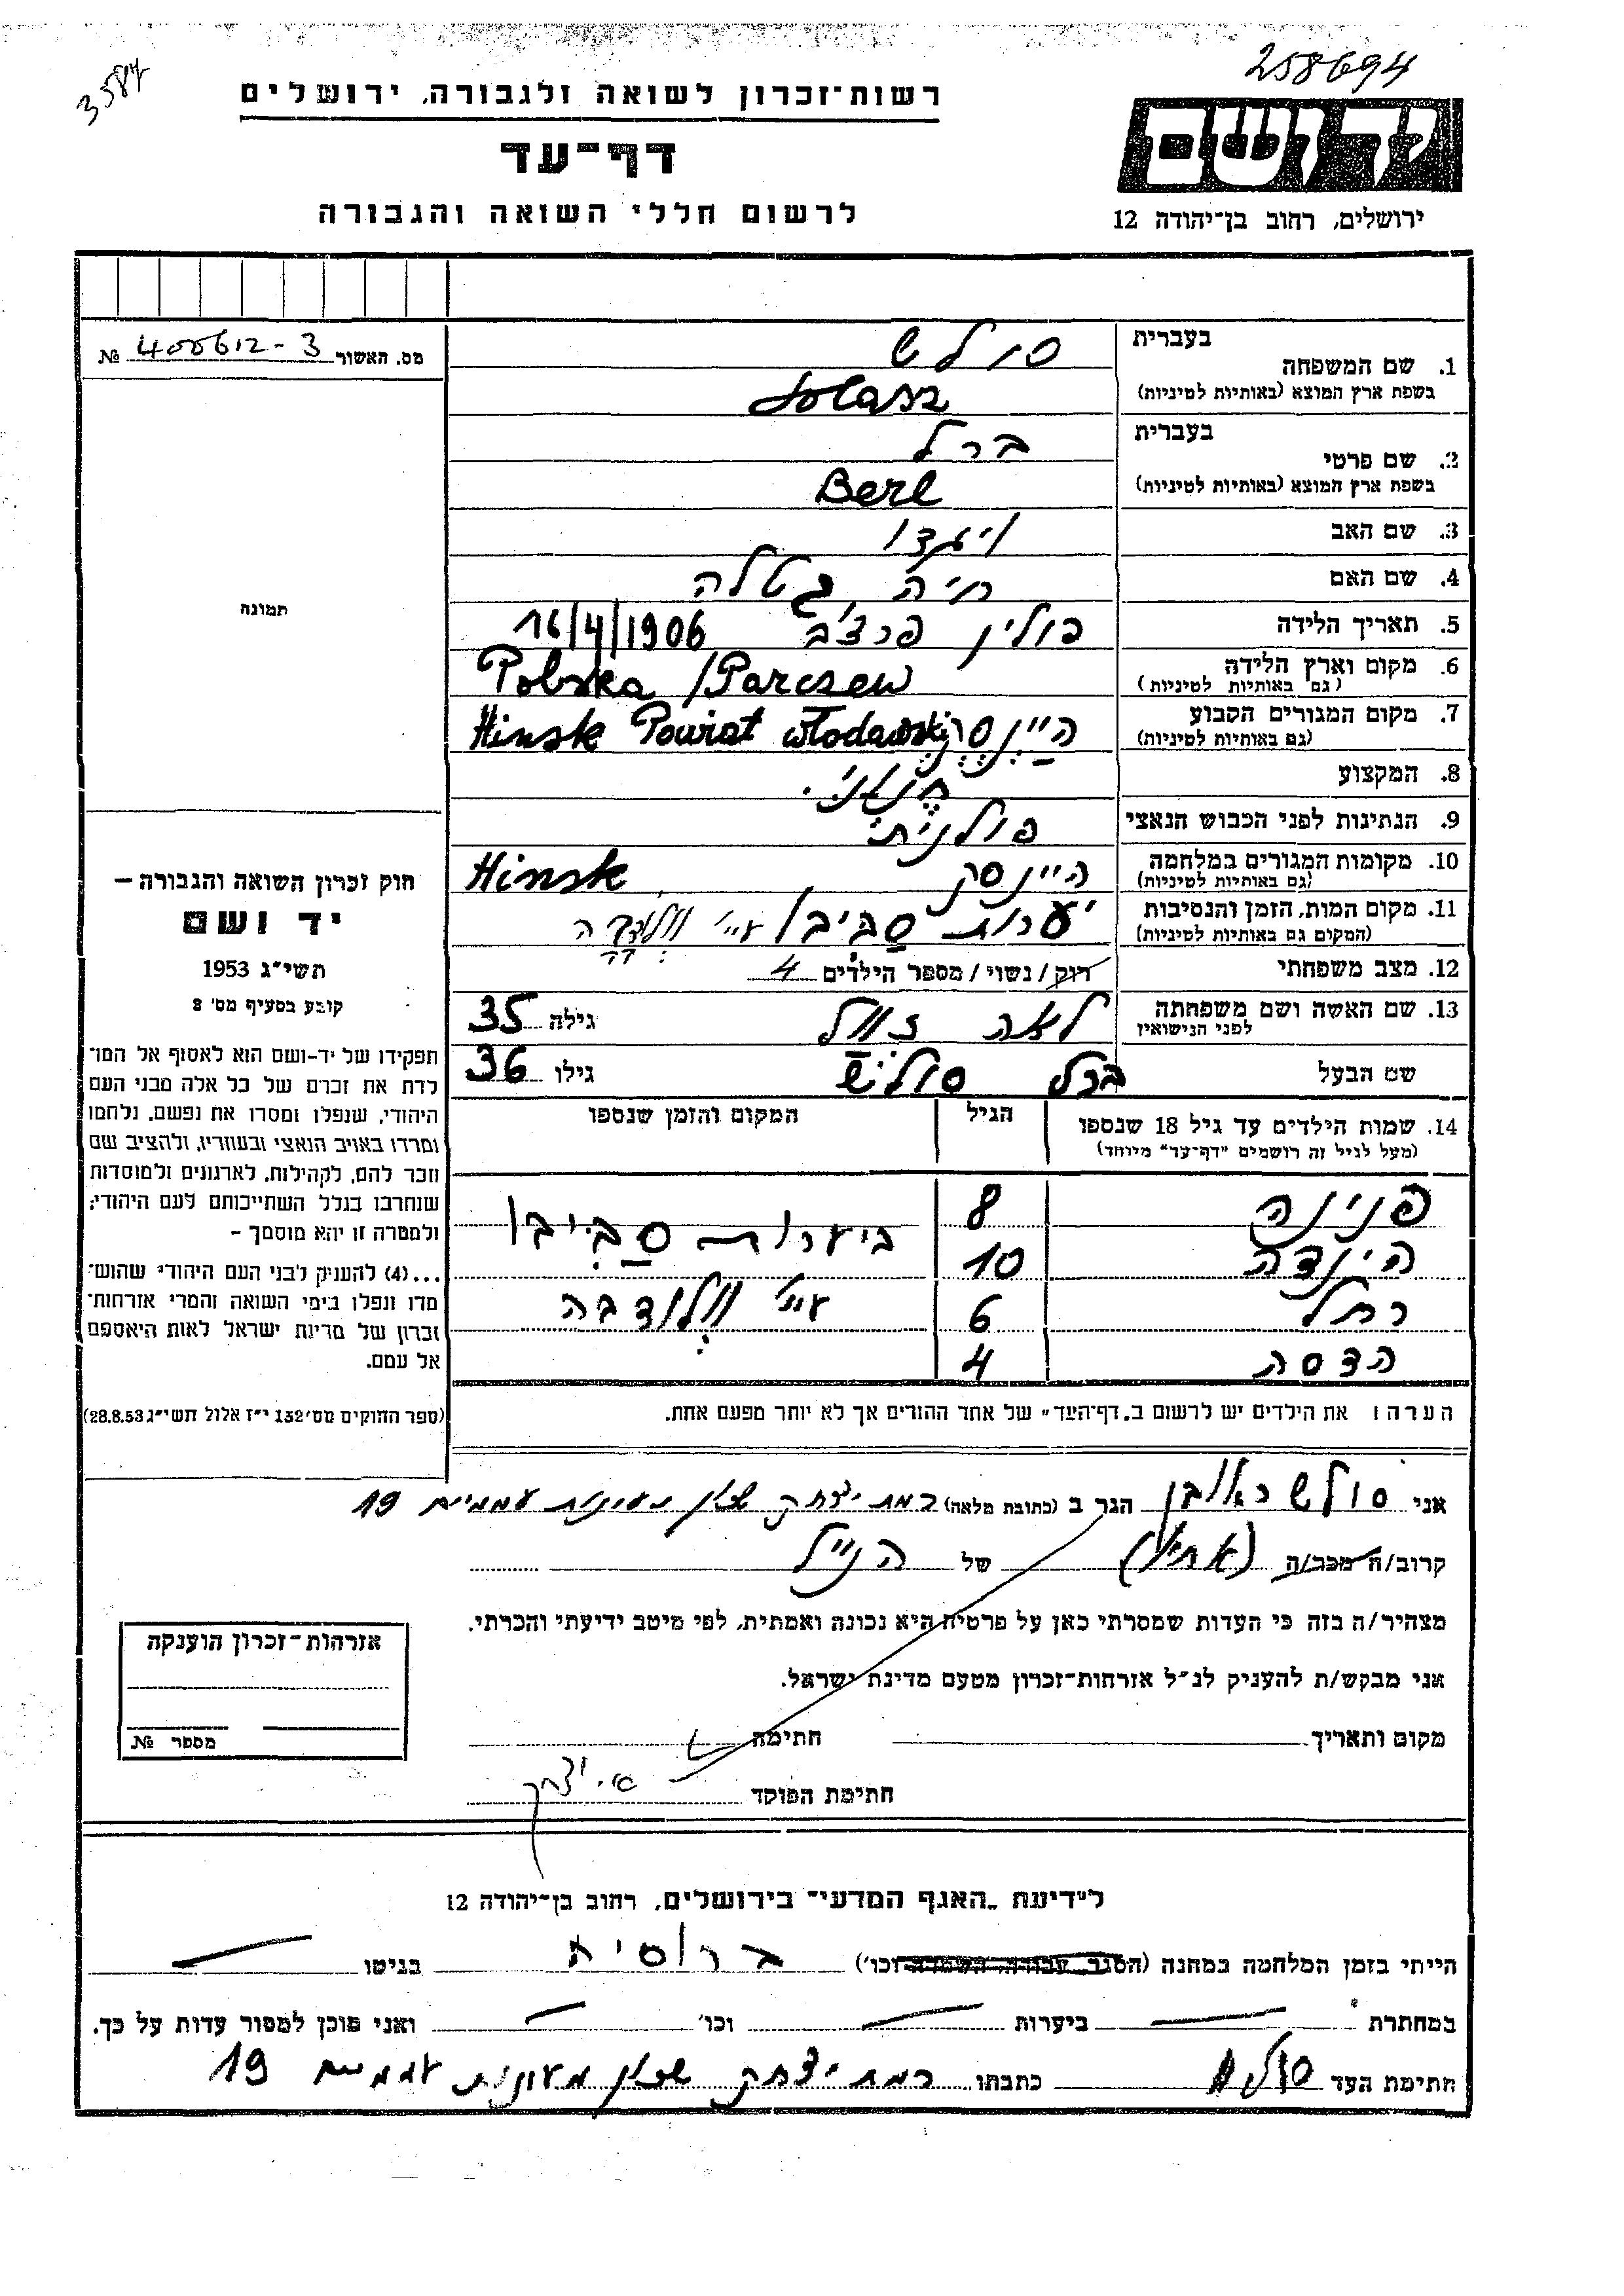 258694
3584
רשות־זכרון לשואה ולגבורה, ירושלים
דף־עד
לרשום חללי השואה והגבורה
יד ושם
ירושלים, רחוב בן־יהודה 12
מס. האשור 400612-3 №
תמונה
חוק זכרון השואה והגבורה —
יד ושם
תשי״ג 1953
קובע בסעיף מס׳ 2
תפקידו של יד-ושם הוא לאסוף אל המו־
לדת את זכרם של כל אלה מבני העם
היהודי, שנפלו ומסרו את נפשם, נלחמו
ומרדו באויב הנאצי ובעוזריו, ולהציב שם
וזכר להם, לקהילות, לארגונים ולמוסדות
שנחרבו בגלל השתייכותם לעם היהודי;
ולמטרה זו יהא מוסמך —
...(4) להעניק לבני העם היהודי שהוש־
מדו ונפלו בימי השואה והמרי אזרחות־
זכרון של מדינת ישראל לאות היאספם
אל עמם.
(ספר החוקים מס׳ 132 י״ז אלול תשי״ג 28.8.53)
1. שם המשפחה
בעברית סולש
בשפת ארץ המוצא (באותיות לטיניות) Solasz
2. שם פרטי
בעברית ברל
בשפת ארץ המוצא (באותיות לטיניות) Berl
3. שם האב
4. שם האם חיה גטלה
5. תאריך הלידה פולין פרצ׳ב 16/4/1906
6. מקום וארץ הלידה
(גם באותיות לטיניות) Polska / Parczew
7. מקום המגורים הקבוע
(גם באותיות לטיניות) היינסק Hinsk Powiat Włodawski
8. המקצוע חנוני
9. הנתינות לפני הכבוש הנאצי פולנית
10. מקומות המגורים במלחמה
(גם באותיות לטיניות) היינסק Hinsk
11. מקום המות, הזמן והנסיבות
(המקום גם באותיות לטיניות) יערות סביבו ע״י
12. מצב משפחתי רוק / נשוי / מספר הילדים 4
13. שם האשה ושם משפחתה
לפני הנישואין לאה זוול גילה 35
שם הבעל ברל סולש גילו 36
14. שמות הילדים עד גיל 18 שנספו
(מעל לגיל זה רושמים ״דף־עד״ מיוחד)
הגיל
המקום והזמן שנספו
פנינה 8 ביערות סביבו
הינדה 10
רחל 6 ע״י וולודבה
הדסה 4
הערה: את הילדים יש לרשום ב„דף־העד״ של אחד ההורים אך לא יותר מפעם אחת.
אני סולש ראובן הגר ב (כתובת מלאה) רמת יצחק שכון מעונות עממיים 19
קרוב/ה מכר/ה (אחיו) של הנ״ל
מצהיר/ה בזה כי העדות שמסרתי כאן על פרטיה היא נכונה ואמתית, לפי מיטב ידיעתי והכרתי.
אני מבקש/ת להעניק לנ״ל אזרחות־זכרון מטעם מדינת ישראל.
מקום ותאריך
חתימה
חתימת הפוקד
אזרחות־זכרון הוענקה
מספר №
לידיעת „האגף המדעי״ בירושלים, רחוב בן־יהודה 12
הייתי בזמן המלחמה במחנה (הסגר, עבודה, השמדה וכו׳) ברוסיה בגיטו —
במחתרת — ביערות — וכו׳ — ואני מוכן למסור עדות על כך.
חתימת העד כתבתו רמת יצחק שכון מעונות עממיים 19